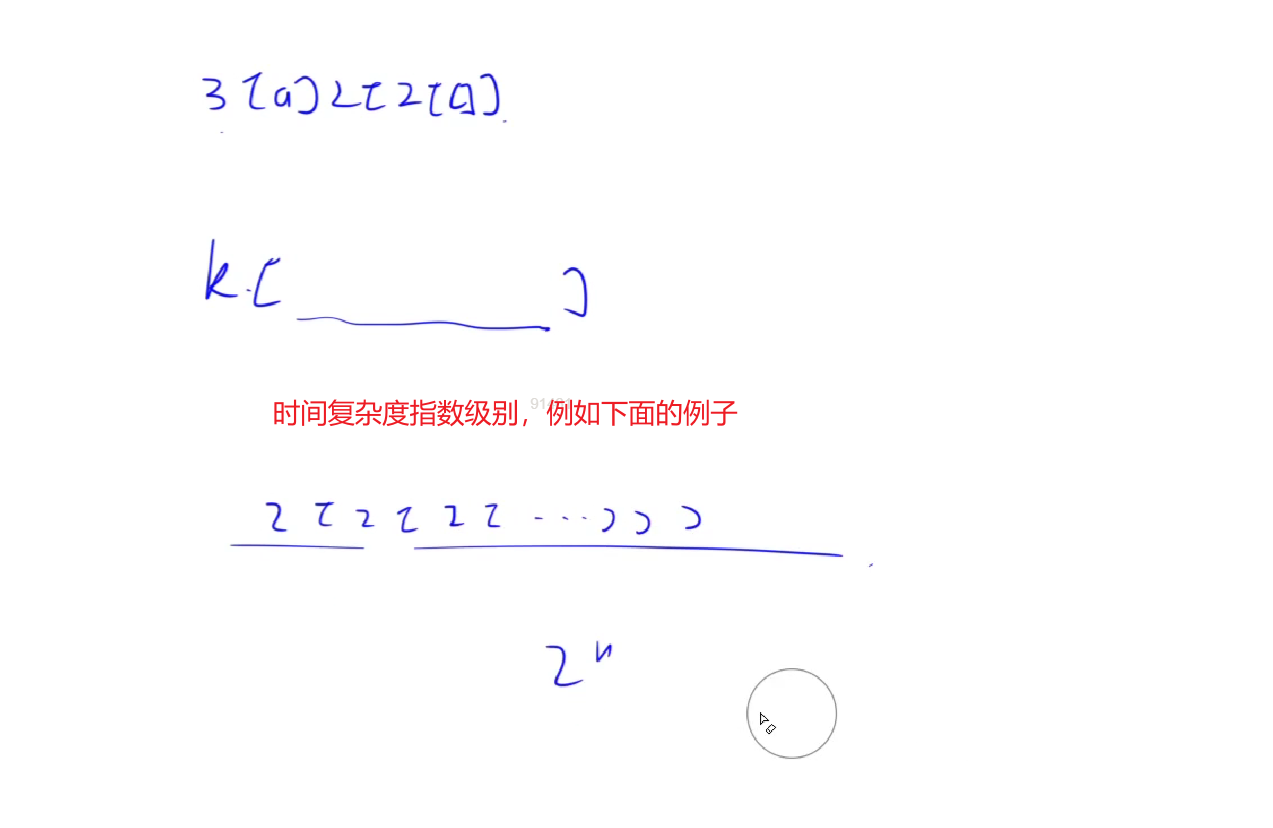 3[a]2[2[a]]
k.[ ]
时间复杂度指数级别，例如下面的例子
2[2[2[...]]]
2ⁿ